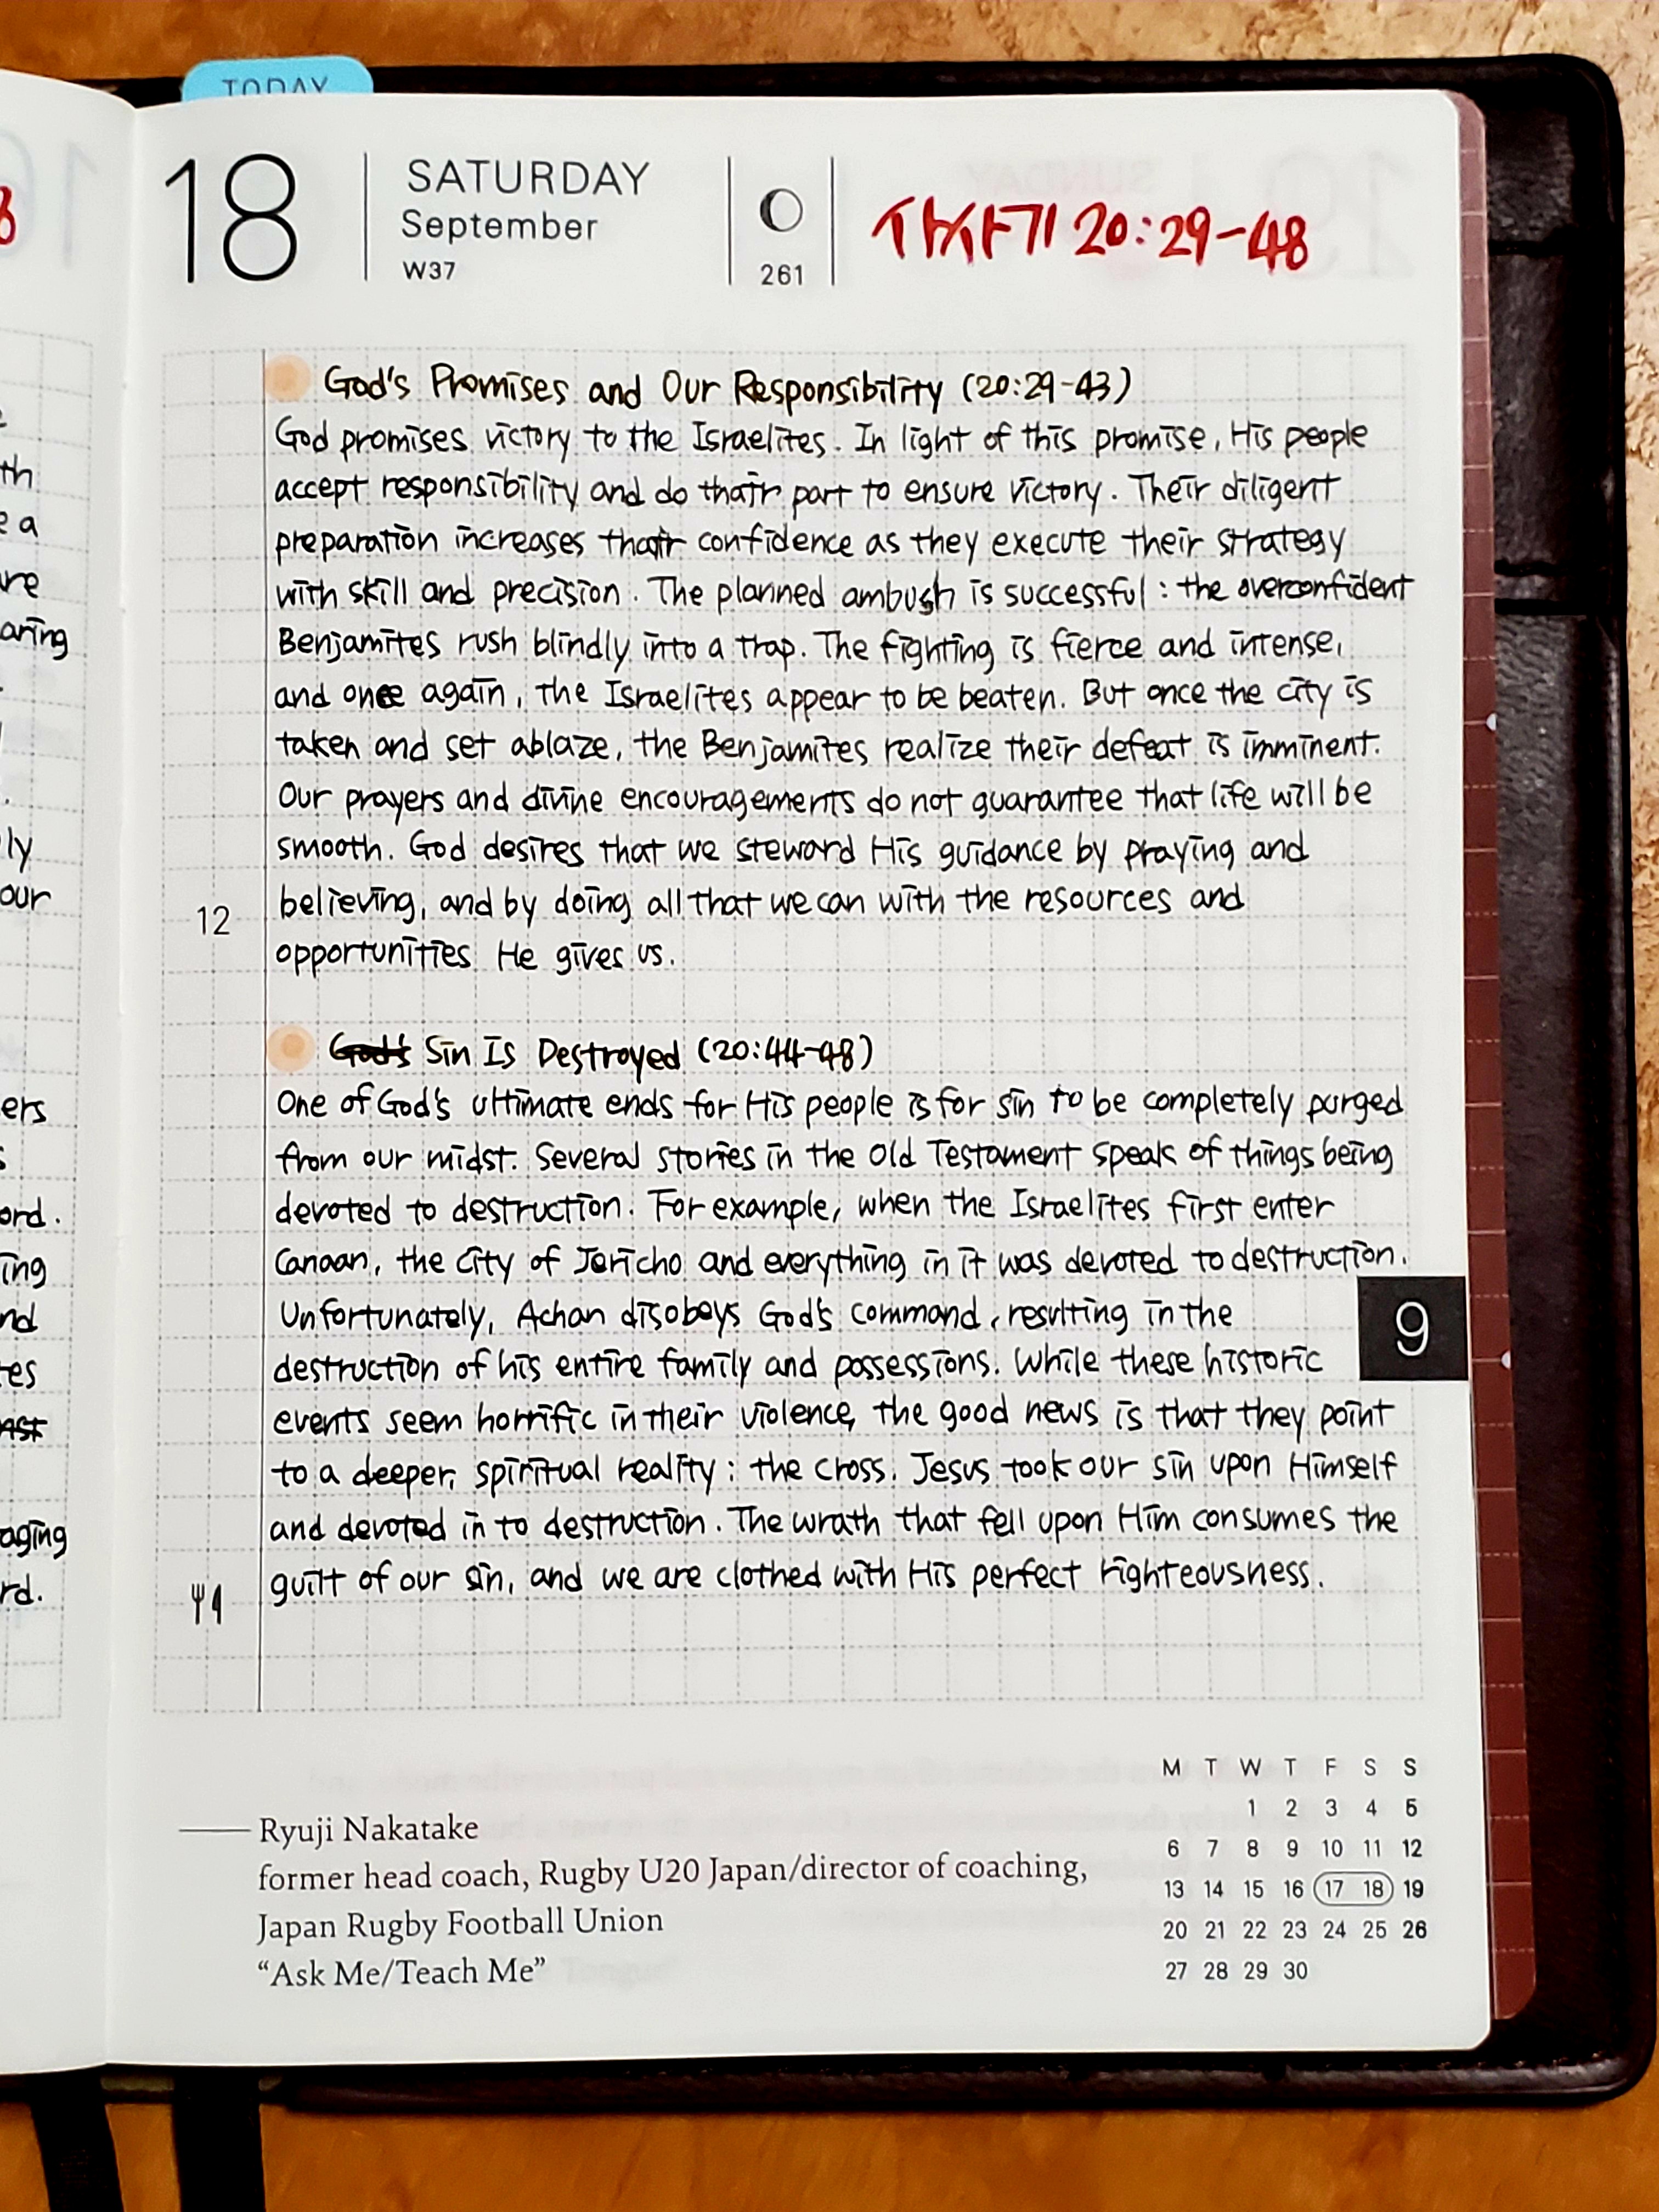 TODAY
18
SATURDAY
September
W37
261
사사기 20:29-48
God's Promises and Our Responsibility (20:29-43)
God promises victory to the Israelites. In light of this promise, His people
accept responsibility and do their part to ensure victory. Their diligent
preparation increases their confidence as they execute their strategy
with skill and precision. The planned ambush is successful: the overconfident
Benjamites rush blindly into a trap. The fighting is fierce and intense,
and once again, the Israelites appear to be beaten. But once the city is
taken and set ablaze, the Benjamites realize their defeat is imminent.
Our prayers and divine encouragements do not guarantee that life will be
smooth. God desires that we steward His guidance by praying and
12
believing, and by doing all that we can with the resources and
opportunities He gives us.
God's Sin Is Destroyed (20:44-48)
One of God's ultimate ends for His people is for sin to be completely purged
from our midst. Several stories in the Old Testament speak of things being
devoted to destruction. For example, when the Israelites first enter
Canaan, the city of Jericho and everything in it was devoted to destruction.
Unfortunately, Achan disobeys God's command, resulting in the
9
destruction of his entire family and possessions. While these historic
events seem horrific in their violence, the good news is that they point
to a deeper, spiritual reality: the cross. Jesus took our sin upon Himself
and devoted in to destruction. The wrath that fell upon Him consumes the
guilt of our sin, and we are clothed with His perfect righteousness.
Ryuji Nakatake
former head coach, Rugby U20 Japan/director of coaching,
Japan Rugby Football Union
“Ask Me/Teach Me”
M T W T F S S
1 2 3 4 5
6 7 8 9 10 11 12
13 14 15 16 17 18 19
20 21 22 23 24 25 26
27 28 29 30
th
e a
re
aring
ly
our
ers
ord.
ing
nd
tes
aging
rd.